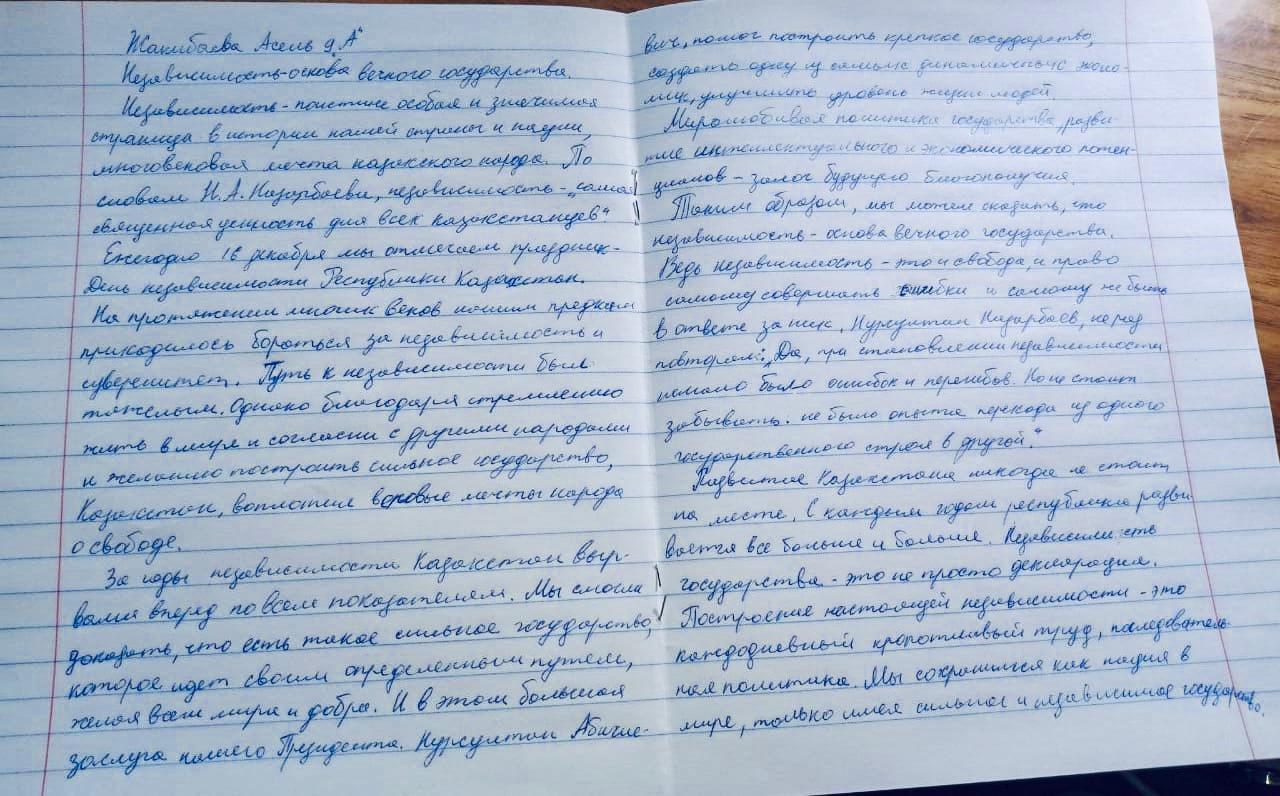 Жакибаева Асель 9 „А“
Независимость-основа вечного государства.
Независимость - поистине особая и значимая
страница в истории нашей страны и нации,
многовековая мечта казахского народа. По
словам Н.А.Назарбаева, независимость - „самая
священная ценность для всех казахстанцев“
Ежегодно 16 декабря мы отмечаем праздник-
День независимости Республики Казахстан.
На протяжении многих веков нашим предкам
приходилось бороться за независимость и
суверенитет. Путь к независимости был
тяжелым. Однако благодаря стремлению
жить в мире и согласии с другими народами
и желанию построить сильное государство,
Казахстан, воплотил вековые мечты народа
о свободе.
За годы независимости Казахстан выр-
вался вперед по всем показателям. Мы смогли
доказать, что есть такое сильное государство,
которое идет своим определенным путем,
желая всем мира и добра. И в этом большая
заслуга нашего Президента. Нурсултан Абише-
вич, помог построить крепкое государство,
создать одну из самых динамичных эконо-
мик, улучшить уровень жизни людей.
Миролюбивая политика государства, разви-
тие интеллектуального и экономического потен-
циалов - залог будущего благополучия.
Таким образом, мы можем сказать, что
независимость - основа вечного государства.
Ведь независимость - это и свобода, и право
самому совершать ошибки и самому же быть
в ответе за них, Нурсултан Назарбаев, не раз
повторял: „Да, при становлении независимости
немало было ошибок и перегибов. Но не стоит
забывать: не было опыта перехода из одного
государственного строя в другой.“
Развитие Казахстана никогда не стоит
на месте. С каждым годом республика разви-
вается все больше и больше. Независимость
государства - это не просто декларация.
Построение настоящей независимости - это
каждодневный кропотливый труд, последователь-
ная политика. Мы сохранимся как нация в
мире, только имея сильное и независимое государство.